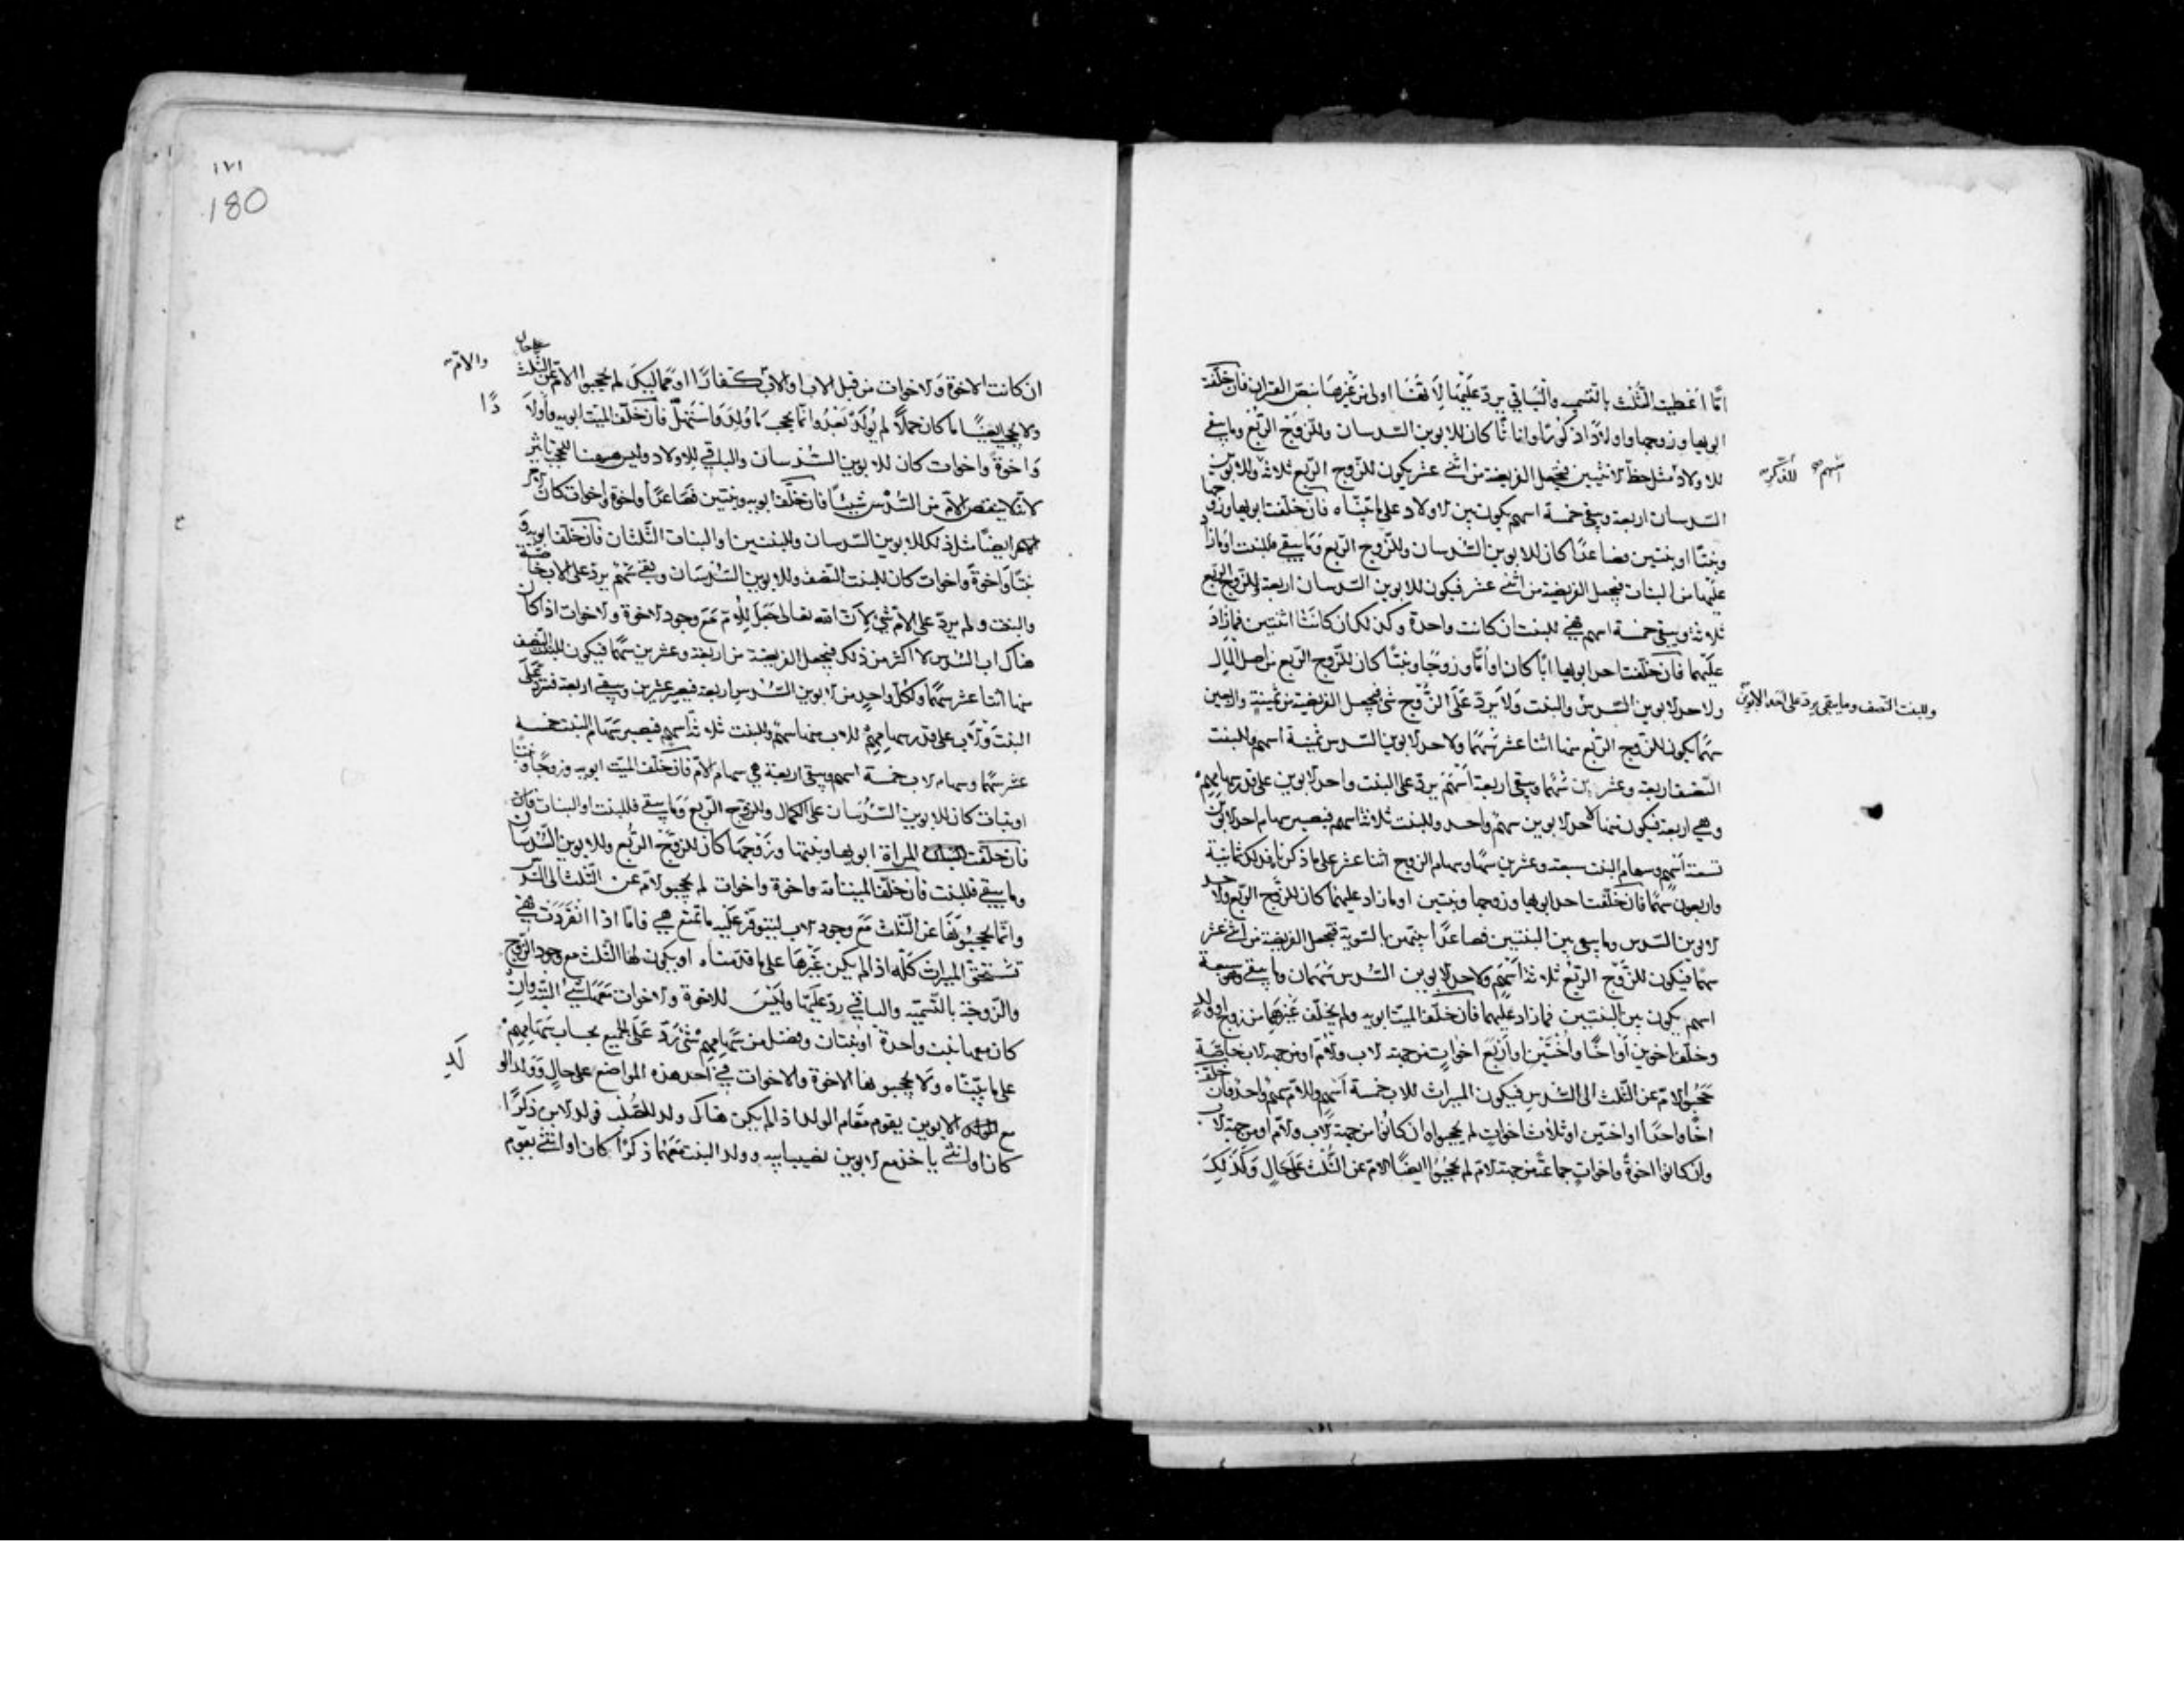 انّما اعطيت الثلث بالتسمية والباقي يردّ عليها لانّها اولى من غيرها بنصّ القران فان خلّفت
ابويها وزوجها واولادًا ذكورًا واناثًا كان للابوين السّدسان وللزّوج الرّبع وما يبقى
للاولاد مثل حظّ الانثيين فتجعل الفريضة من اثنى عشر يكون للزّوج الرّبع ثلاثة وللابوين
اسهم
للذكر
السّدسان اربعة ويبقى خمسة اسهم يكون بين الاولاد على ما بيّنّاه فان خلّفت ابويها وزوجها
وبنتًا او بنتين فصاعدًا كان للابوين السّدسان وللزّوج الرّبع وما يبقى فللبنت او ما زاد
عليها من البنات فيجعل الفريضة من اثنى عشر فيكون للابوين السّدسان اربعة وللزّوج الرّبع
ثلاثة ويبقى خمسة اسهم فهي للبنت ان كانت واحدة وكذلك ان كانتا اثنتين فما زاد
عليهما فان خلّفت احد ابويها ابًا كان او أمًّا وزوجًا وبنتًا كان للزّوج الرّبع من اصل المال
ولاحد الابوين السّدس والبنت ولا يردّ على الزّوج شئ فيجعل الفريضة من ثمنية واربعين
وللبنت النّصف وما يبقى يردّ على احد الابوين
سهمًا يكون للزّوج الرّبع منها اثنا عشر سهمًا ولاحد الابوين السّدس ثمنية اسهم وللبنت
النّصف اربعة وعشرين سهمًا ويبقى اربعة اسهم يردّ على البنت واحد الابوين على قدر سهامهم
وهي اربعة فيكون منها لاحد الابوين سهم واحد وللبنت ثلاثة اسهم فيصير سهام احد الابوين
تسعة اسهم وسهام البنت سبعة وعشرين سهمًا وسهام الزوج اثنا عشر على ما ذكرناه فذلك ثمانية
واربعون سهمًا فان خلّفت احد ابويها وزوجها وبنتين او ما زاد عليهما كان للزّوج الرّبع ولاحد
الابوين السّدس وما يبقى بين البنتين فصاعدًا بينهن بالسّوية فتجعل الفريضة من اثنى عشر
سهمًا فيكون للزّوج الرّبع ثلاثة اسهم ولاحد الابوين السّدس سهمان وما يبقى وهو سبعة
اسهم يكون بين البنتين فما زاد عليهما فان خلّف الميّت ابويه ولم يخلّف غيرهما من زوج او ولد
وخلّف اخوين أو اخًا واختين او أربع اخوات من جهة الاب والام او من جهة الاب خاصّة
حجبوا الام عن الثلث الى السّدس فيكون الميراث للاب خمسة أسهم وللام سهم واحد فان خلّف
اخًا واحدًا او اختين او ثلاث اخوات لم يحجبوها وان كانوا من جهة الاب والام او من جهة الاب
وان كانوا اخوة واخوات جماعة من جهة الام لم يحجبوا ايضًا الام عن الثلث على حال وكذلك
١٧١
180
ان كانت الاخوة والاخوات من قبل الاب او الاب كفارًا او مماليك لم يحجبوا الام عن الثلث
على حال
والام
ولا يحجب ايضًا ما كان حملاً لم يولد بعد وانّما يحجب ما ولد واستهلّ فان خلّف الميّت ابويه واولا
دًا
واخوة واخوات كان للابوين السّدسان والباقي للاولاد وليس للحجب تاثير
لانّه لا ينقص الام من السّدس شيئًا فان خلّف ابويه وبنتين فصاعدًا واخوة واخوات كان
ايضًا مثل ذلك للابوين السّدسان وللبنتين او البنات الثّلثان فان خلّف ابويه و
بنتًا واخوة واخوات كان للبنت النّصف وللابوين السّدسان وبقي سهم يردّ على الاب خاصّة
والبنت ولم يردّ على الام شئ لانّ الله تعالى جعل للام مع وجود الاخوة والاخوات اذا كان
هناك اب السّدس لا اكثر من ذلك فيجعل الفريضة من اربعة وعشرين سهمًا فيكون للبنت النّصف
منها اثنا عشر سهمًا ولكلّ واحد من الابوين السّدس اربعة فيصير عشرين ويبقى اربعة فتردّ على
البنت والاب على قدر سهامهم للاب منها سهم وللبنت ثلاثة اسهم فيصير سهام البنت خمسه
عشر سهمًا وسهام الاب خمسة اسهم ويبقى اربعة هي سهام الام فان خلّف الميّت ابويه وزوجًا وبنتًا
او بنات كان للابوين السّدسان على الكمال وللزّوج الرّبع وما يبقى فللبنت او البنات فان
فان خلّفت المراة ابويها وبنتها وزوجها كان للزّوج الرّبع وللابوين السّدسان
وما يبقى فللبنت فان خلّف الميّت امّه واخوة واخوات لم يحجبوا الام عن الثلث الى السّدس
وانّما يحجبونها عن الثلث مع وجود الاب ليتوفّر عليه ما تمنع هي فامّا اذا انفردت فهي
تستحقّ الميراث كلّه اذا لم يكن غيرها على ما قدّمناه او يكون لها الثّلث مع وجود الزّوج
والزّوجة بالتّسمية والباقي ردّ عليها وليس للاخوة والاخوات معها شئ البتّة وان
كان معها بنت واحدة او بنتان وفضل من سهامهم شئ ردّ على الجميع بحساب سهامهم
على ما بيّنّاه ولا يحجبونها الاخوة والاخوات في احد هذه المواضع على حال وولد الو
لد
مع الابوين يقوم مقام الولد اذا لم يكن هناك ولد للصّلب فولد الابن ذكرًا
كان او انثى ياخذ مع الابوين نصيب ابيه وولد البنت معهما ذكرًا كان او انثى يقوم